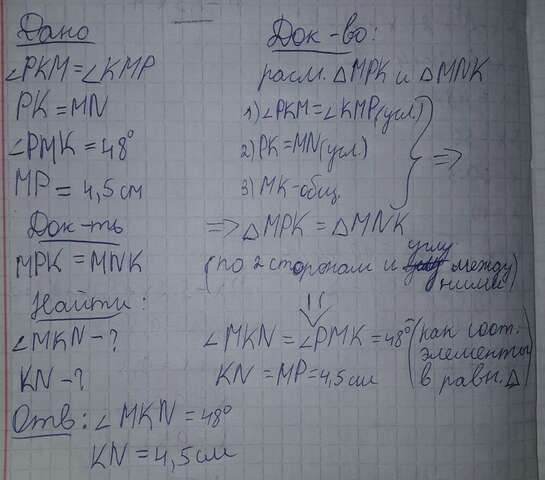 Дано
∠PKM=∠KMP
PK=MN
∠PMK=48°
MP=4,5см
Док-ть
MPK=MNK
Найти:
∠MKN-?
KN-?
Отв: ∠MKN=48°
KN=4,5см
Док-во:
расм. △MPK и △MNK
1) ∠PKM=∠KMP(усл.)
2) PK=MN(усл)
3) MK-общ.
=>
=> △MPK=△MNK
(по 2 сторонам и углу между
ними)
∠MKN=∠PMK=48° (как соот.
элементы
KN=MP=4,5см в равн.△)